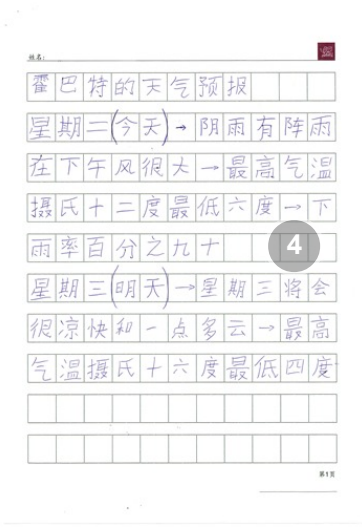 姓名:
霍巴特的天气预报
星期二(今天)→阴雨有阵雨
在下午风很大→最高气温
摄氏十二度最低六度→下
雨率百分之九十
4
星期三(明天)→星期三将会
很凉快和一点多云→最高
气温摄氏十六度最低四度
第1页